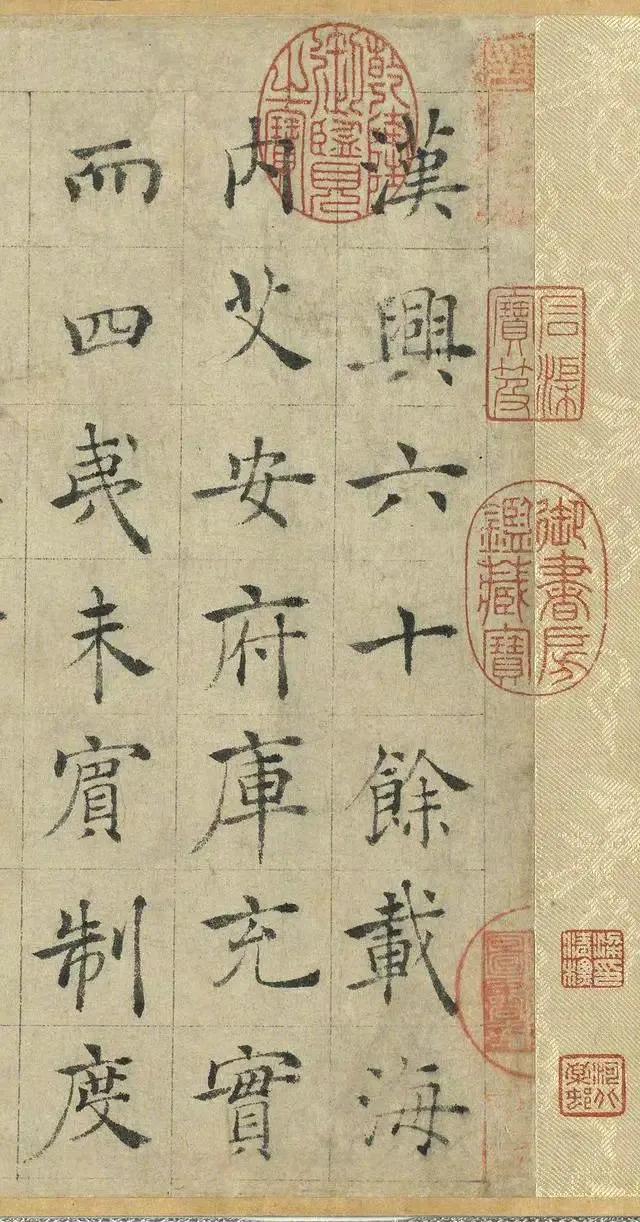 漢興六十餘載海
內艾安府庫充實
而四夷未賓制度
乾隆御覽之寶
石渠寶笈
御書房鑑藏寶
河北棠村